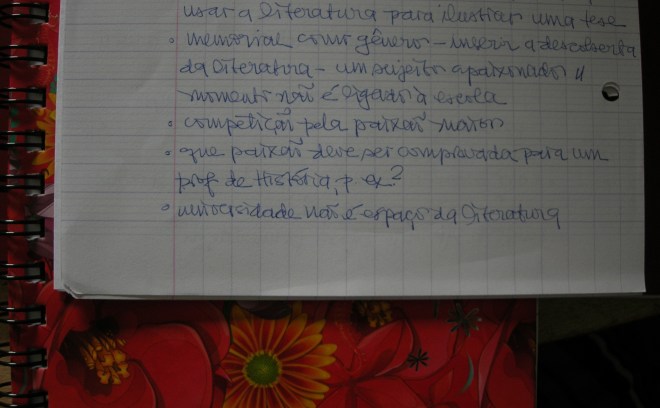 usar a literatura para ilustrar uma tese
• memorial como gênero – inserir a descoberta
da literatura – um sujeito apaixonado //
momento não é ligado à escola
• competição pela paixão maior
• que paixão deve ser comprovada para um
prof. de História, p. ex.?
• universidade não é espaço da literatura